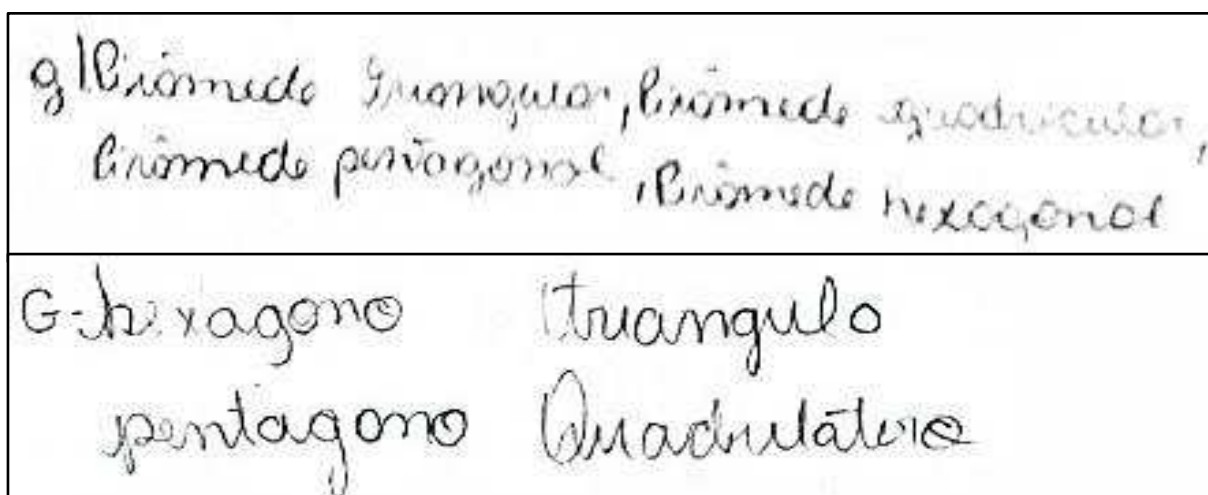 g) Pirâmede Triangular, Pirâmede quadricular,
Pirâmede pentagonal, Pirâmede hexagonal
G- hexagono triangulo
pentagono Quadrulátero